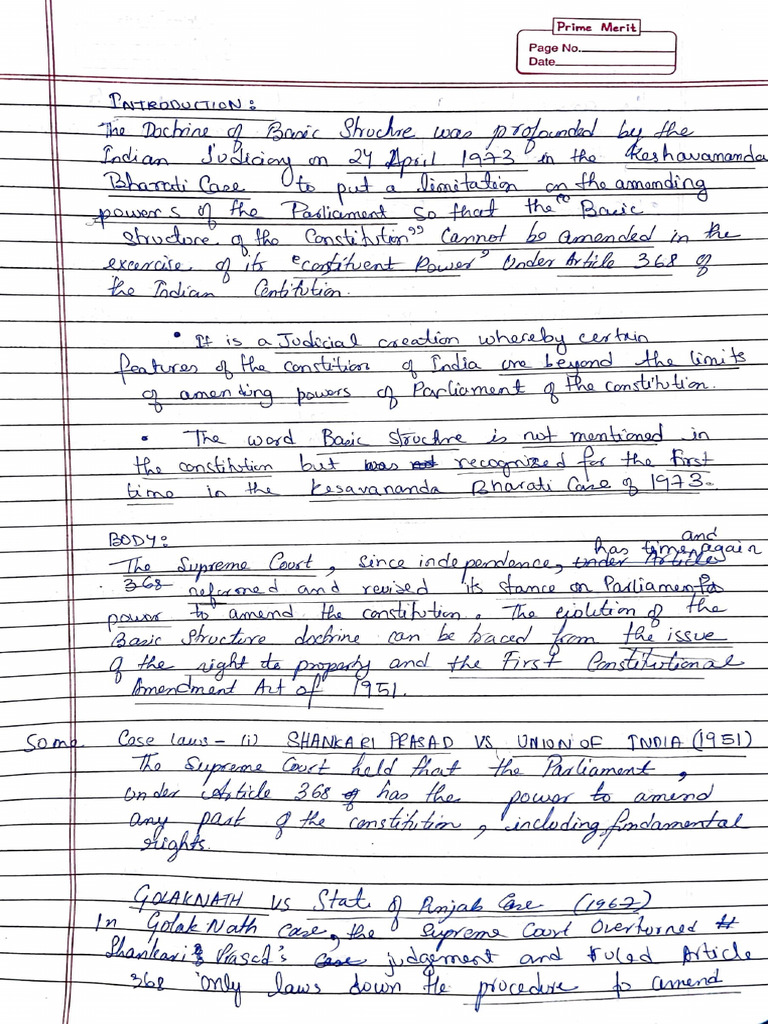 Prime Merit
Page No.
Date
INTRODUCTION:
The Doctrine of Basic Struchre was profounded by the
Indian Judiciary on 24 April 1973 in the Keshavananda
Bharati Case to put a limitation on the amonding
powers of the Parliament so that the "Basic
structure of the Constitution" cannot be amended in the
excercise of its "constituent Power" Under Article 368 of
the Indian Contitution.
• It is a Judicial creation whereby certain
features of the constition of India are beyond the limits
of amending powers of Parliament of the constitution.
• The word Basic Struchre is not mentioned in
the constitution but was not recognized for the First
time in the Kesavananda Bharati Case of 1973.
BODY:
The Supreme Court, since independence, under Article has time and again
368 reformed and revised its stance on Parliament's
power to amend the constitution. The evolution of the
Basic Structure doctrine can be traced from the issue
of the right to property and the First Constitutional
Amendment Act of 1951.
Some Case laws - (i) SHANKARI PRASAD VS UNION OF INDIA (1951)
The Supreme Court held that the Parliament,
under Article 368 of has the power to amend
any part of the constitution, including fundamental
rights.
GOLAKNATH VS State of Punjab Case (1967)
In Golak Nath case, the Supreme Court Overturned
Shankari Prasad's case judgement and ruled Article
368 only laws down the procedure to amend